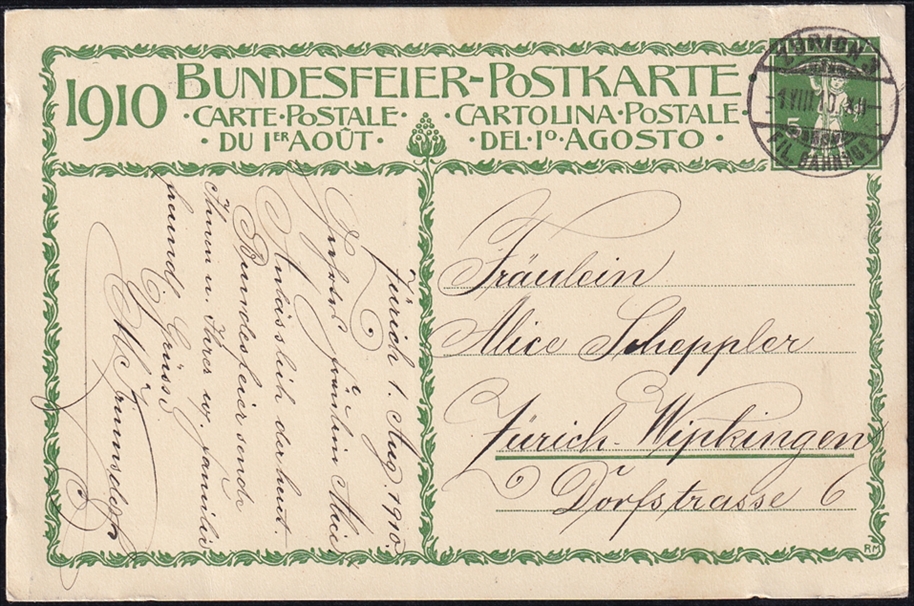 1910 BUNDESFEIER-POSTKARTE
·CARTE·POSTALE· ·CARTOLINA·POSTALE·
·DU 1ER AOÛT· ·DEL·1O·AGOSTO·
ZÜRICH
1.VIII.10.
FIL. BAHNHOF
5
Zürich 1. Aug. 1910.
Fräulein Alice
Anlässlich der heut.
Bundesfeier sende
Ihnen u. Ihrer w. Familie
freundl. Grüsse
Fräulein
Alice Scheppler
Zürich-Wipkingen
Dorfstrasse 6
RM